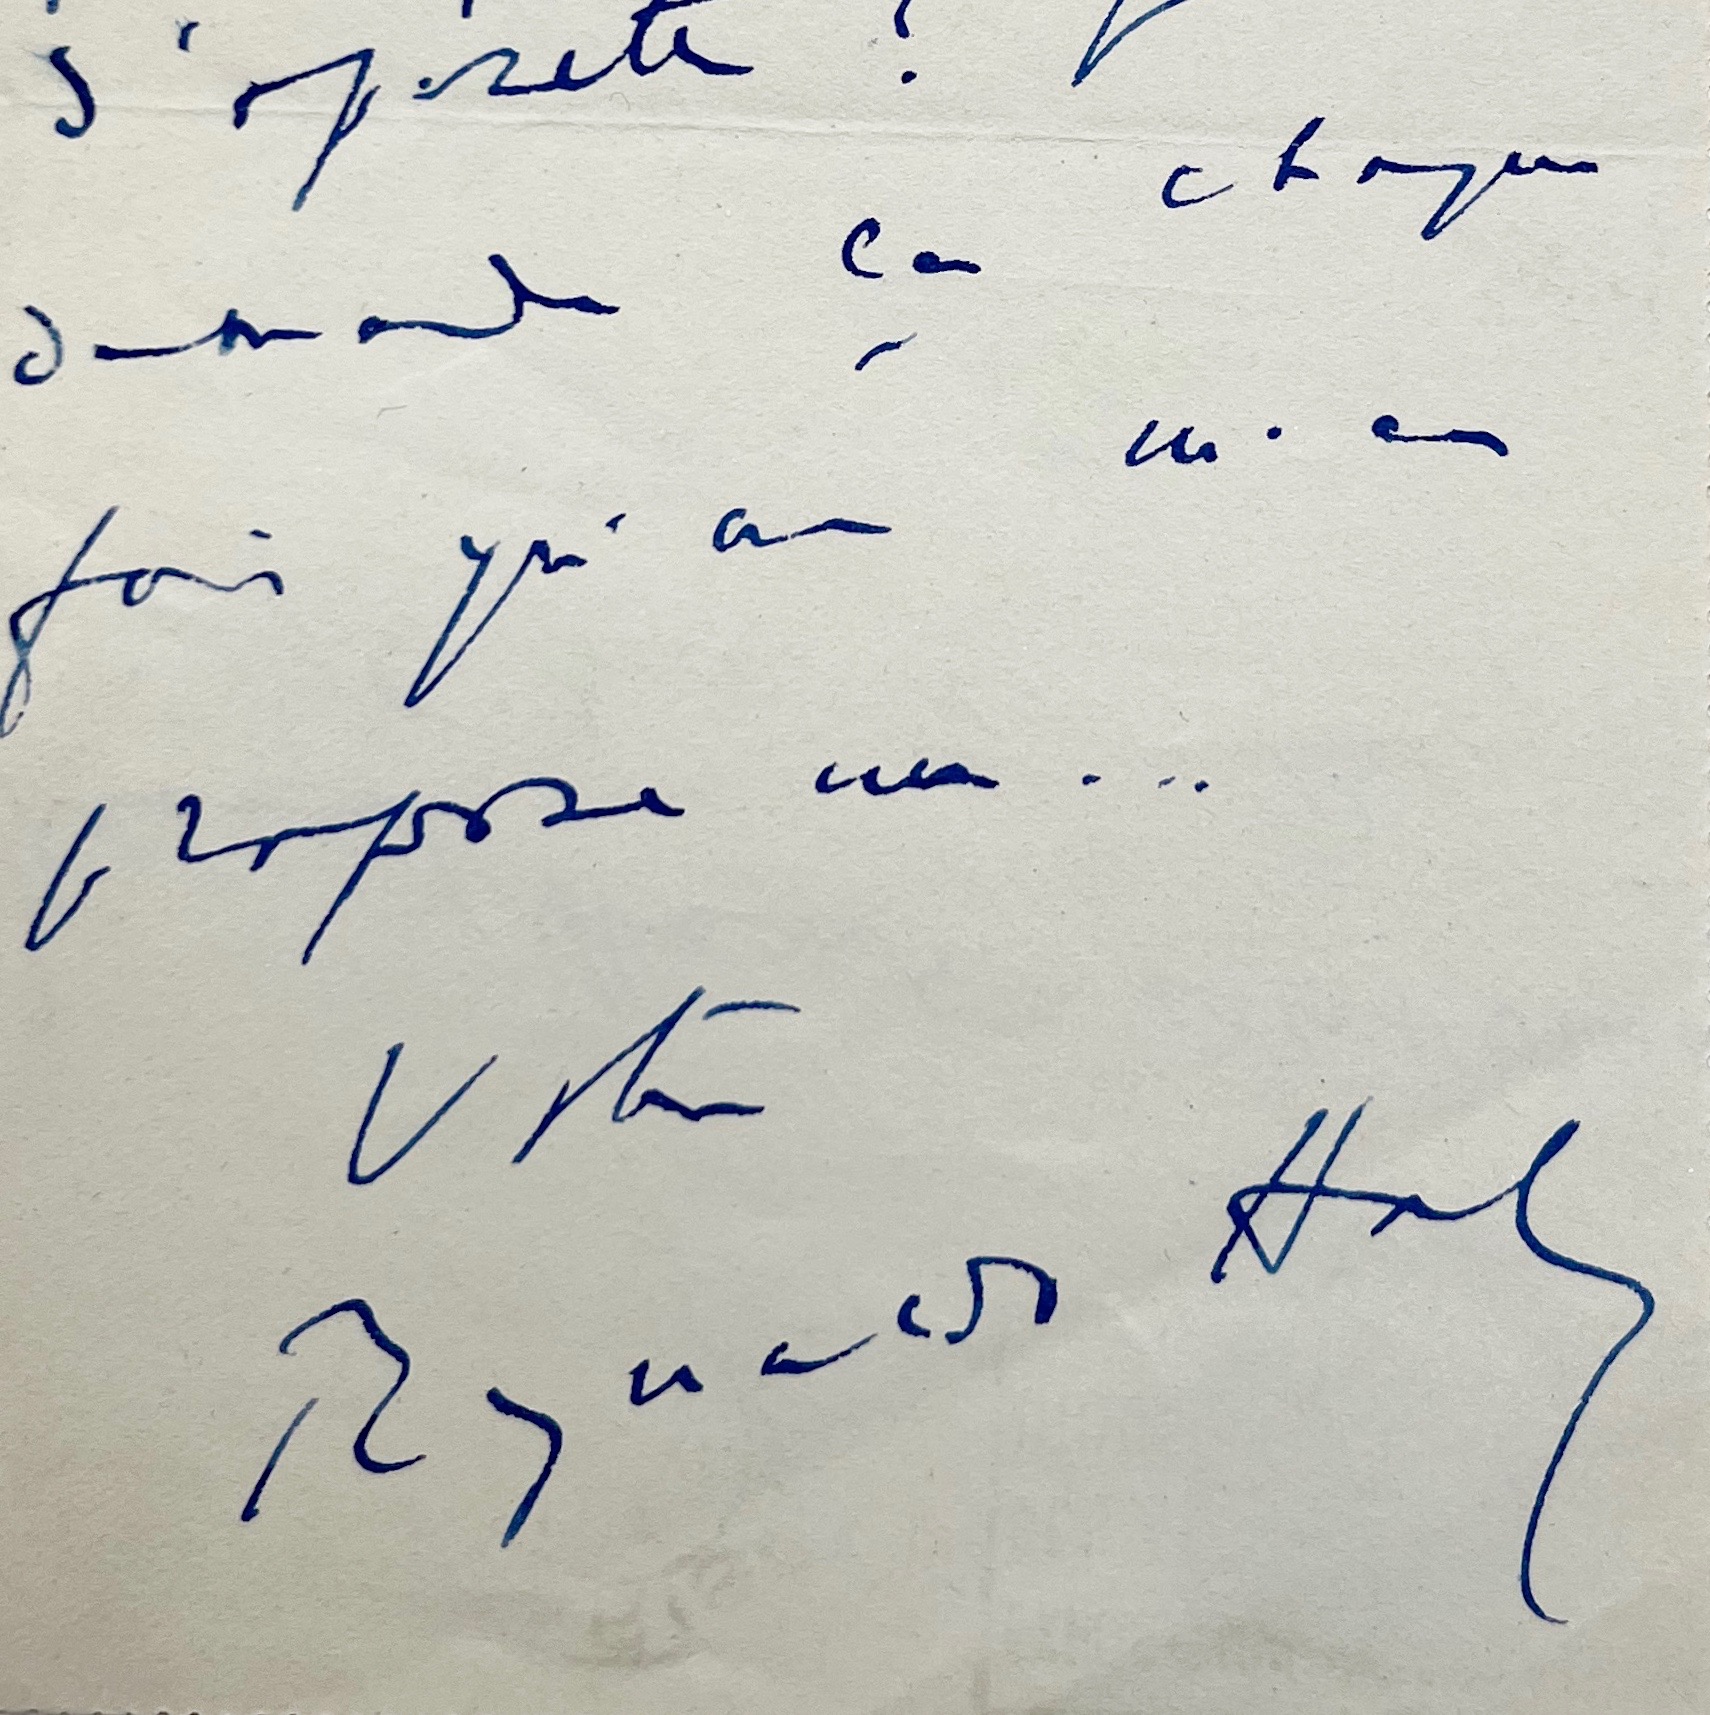 d'opérette ? Je
demande ça chaque
fois qu'on m'en
propose un ....
Votre
Reynaldo Hahn